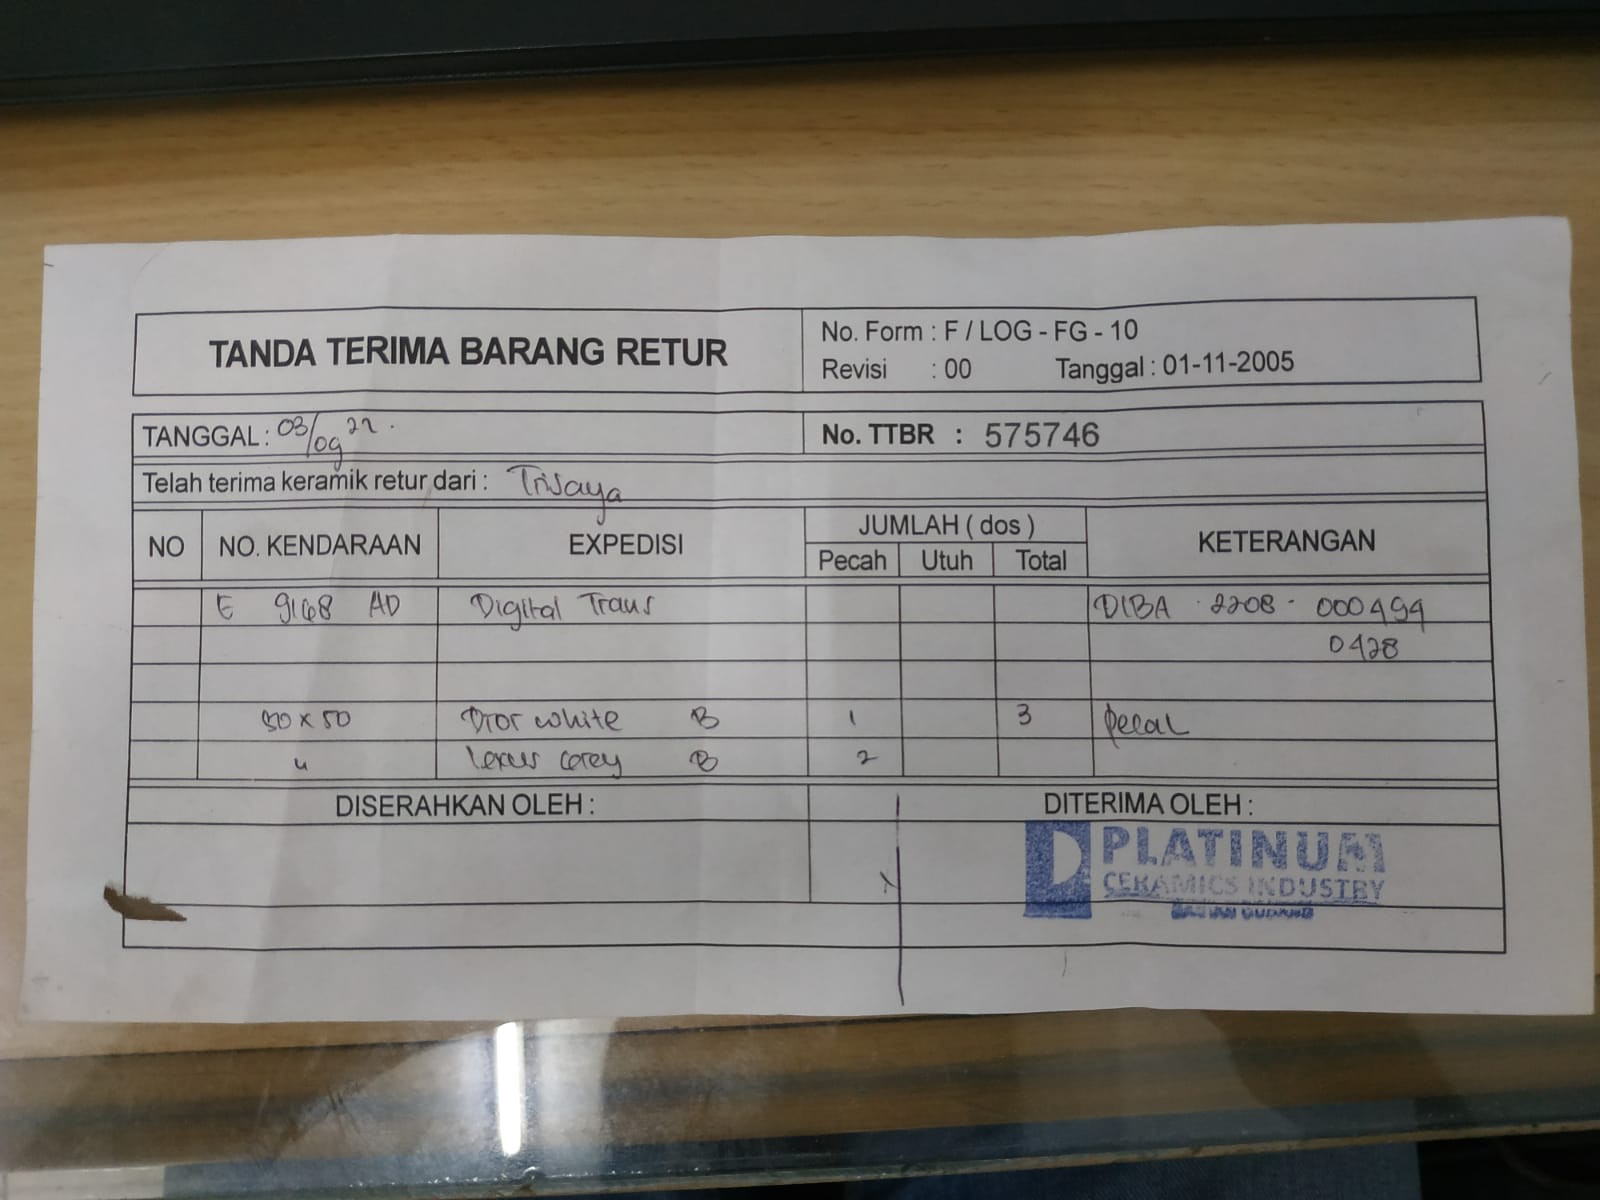 TANDA TERIMA BARANG RETUR
No. Form : F / LOG - FG - 10
Revisi : 00 Tanggal : 01-11-2005
TANGGAL : 03/09 22 .
No. TTBR : 575746
Telah terima keramik retur dari : Trijaya
NO NO. KENDARAAN EXPEDISI JUMLAH ( dos ) KETERANGAN
Pecah Utuh Total
E 9168 AD Digital Trans DIBA - 2208 - 000494
0428
50 x 50 Dior white B 1 3 pecah
" Lexus Grey B 2
DISERAHKAN OLEH : DITERIMA OLEH :
PLATINUM
CERAMICS INDUSTRY